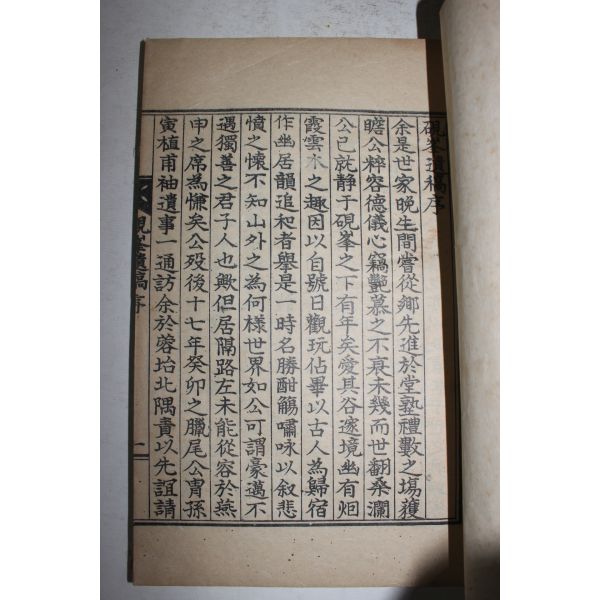 硯峯遺稿序
余是世家晚生間嘗從鄉先進於堂塾禮數之場獲
瞻公粹容德儀心竊艷慕之不衰未幾而世翻桑瀾
公已就静于硯峯之下有年矣愛其谷邃境幽有烟
霞雲水之趣因以自號日觀玩佔畢以古人為歸宿
作幽居韻追和者擧是一時名勝酣觴嘯咏以叙悲
憤之懷不知山外之為何樣世界如公可謂豪邁不
遇獨善之君子人也歟但居隔路左未能從容於燕
申之席為慊矣公歿後十七年癸卯之臘尾公胄孫
寅植甫袖遺事一通訪余於蓉坮北隅責以先誼請
硯峯遺稿序
一